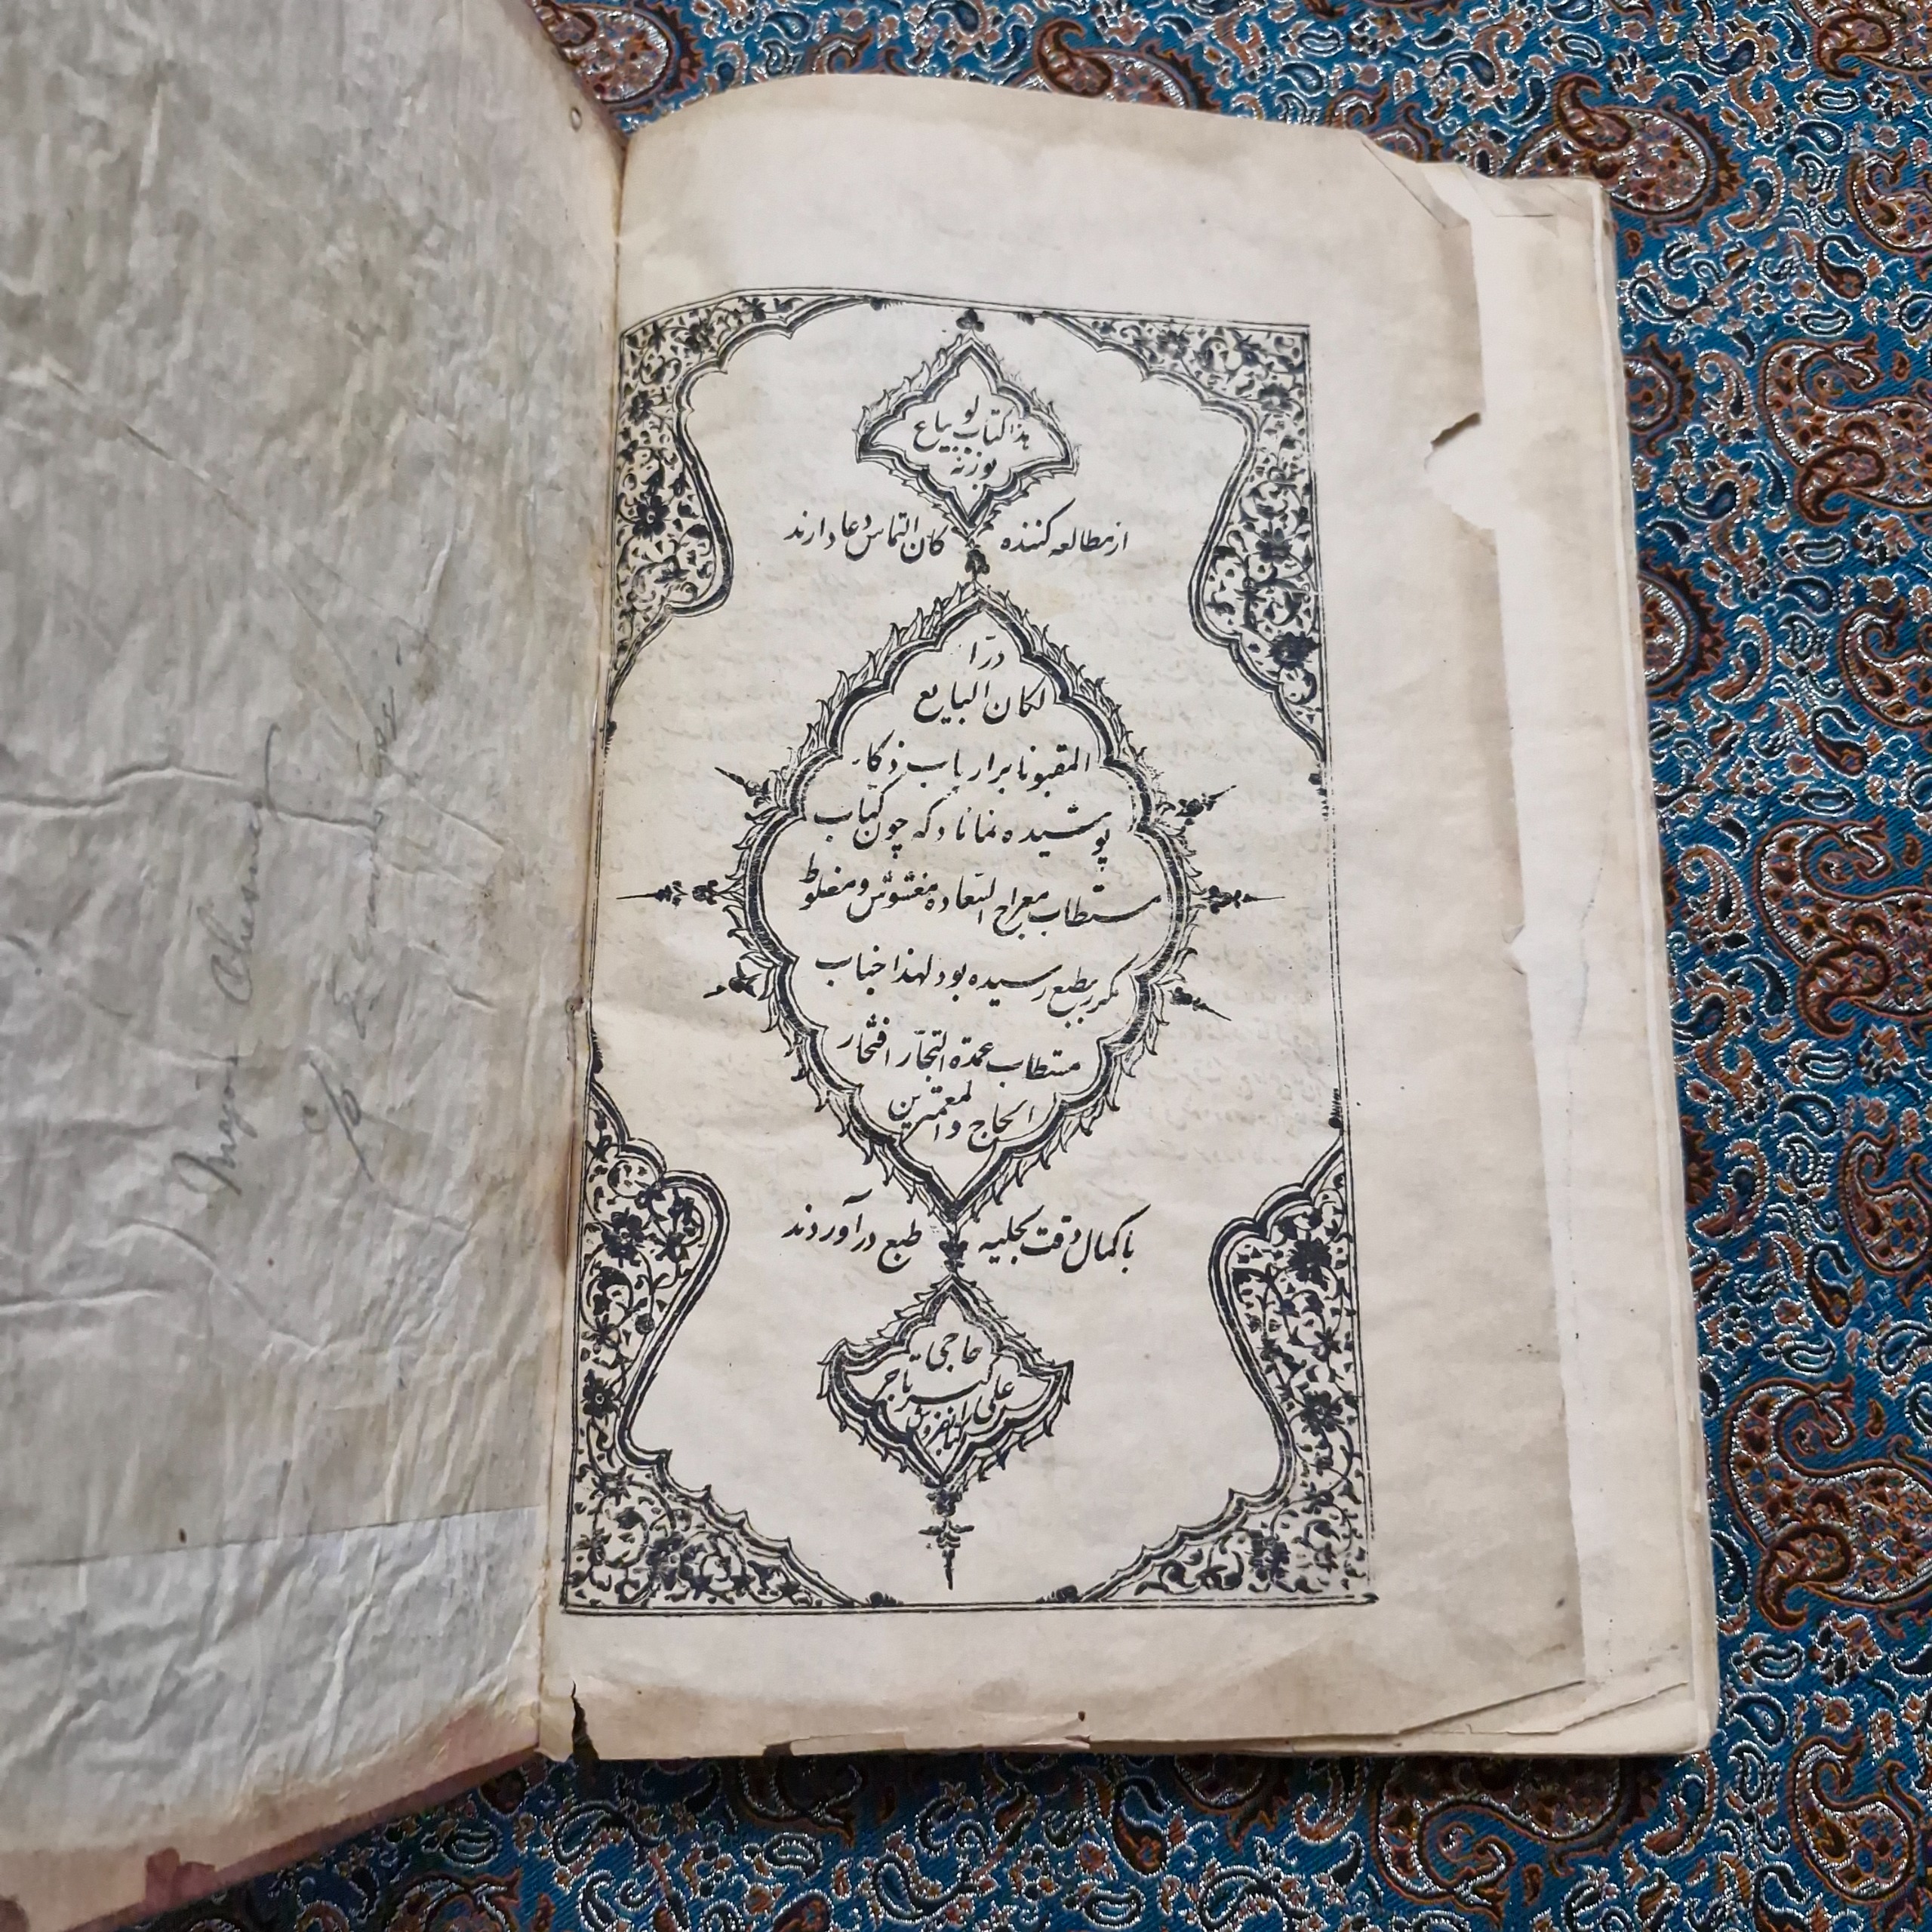 هذا کتاب لو یباع
بوزنه
از مطالعه کننده کان التماس دعا دارند
درّا
لکان البایع
المغبونا بر ارباب ذکاء
پوشیده نماناد که چون کتاب
مستطاب معراج السّعاده مغشوش و مغلوط
مکرر بطبع رسیده بود لهذا جناب
مستطاب عمدة التجّار افتخار
الحاج والمعتمرین
با کمال دقت بحلیه طبع درآوردند
حاجی
علی اکبر تاجر
کتابفروش
Major
c/o